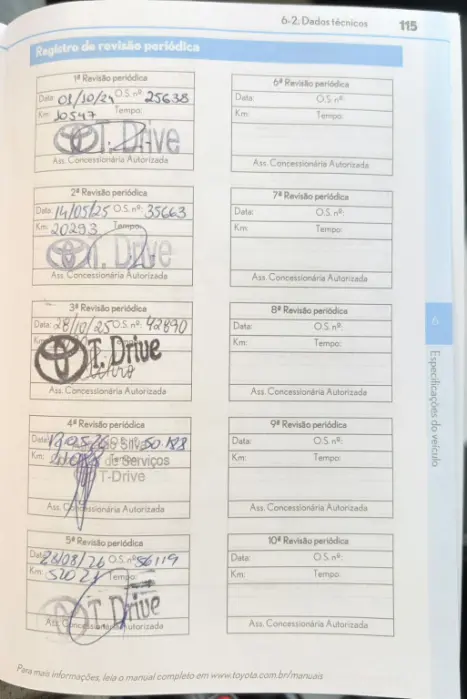 6-2. Dados técnicos 115
Registro de revisão periódica
1ª Revisão periódica
Data: 01/10/24 O.S. nº: 25638
Km: 10547 Tempo:
T. Drive
Ass. Concessionária Autorizada
2ª Revisão periódica
Data: 14/05/25 O.S. nº: 35663
Km: 20293 Tempo:
T. Drive
Ass. Concessionária Autorizada
3ª Revisão periódica
Data: 28/10/25 O.S. nº: 42890
Km: Tempo:
T. Drive
Ass. Concessionária Autorizada
4ª Revisão periódica
Data: O.S. nº: 50188
Km: Tempo:
de Serviços
T-Drive
Ass. Concessionária Autorizada
5ª Revisão periódica
Data: 28/08/26 O.S. nº: 56119
Km: Tempo:
T. Drive
Ass. Concessionária Autorizada
6ª Revisão periódica
Data: O.S. nº:
Km: Tempo:
Ass. Concessionária Autorizada
7ª Revisão periódica
Data: O.S. nº:
Km: Tempo:
Ass. Concessionária Autorizada
8ª Revisão periódica
Data: O.S. nº:
Km: Tempo:
Ass. Concessionária Autorizada
9ª Revisão periódica
Data: O.S. nº:
Km: Tempo:
Ass. Concessionária Autorizada
10ª Revisão periódica
Data: O.S. nº:
Km: Tempo:
Ass. Concessionária Autorizada
6
Especificações do veículo
Para mais informações, leia o manual completo em www.toyota.com.br/manuais